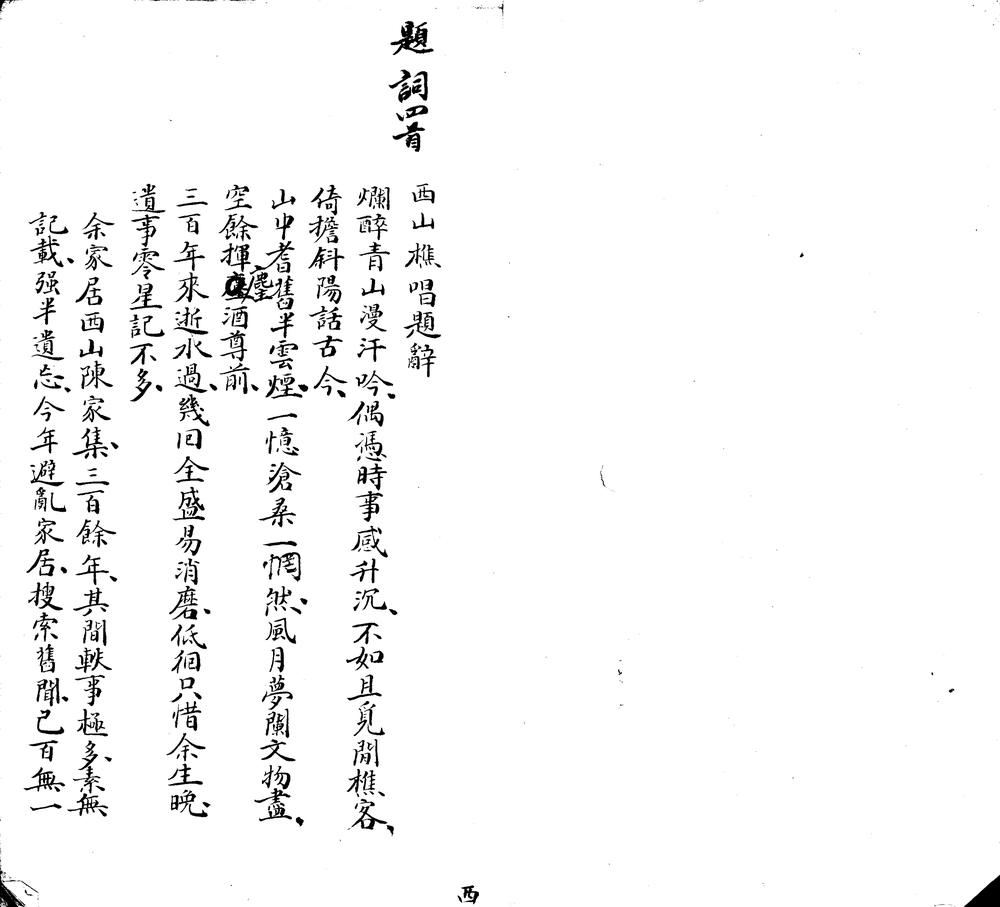 題詞四首
西山樵唱題辭
爛醉青山漫汗吟、偶憑時事感升沉、不如且覓閒樵客、
倚擔斜陽話古今、
山中耆舊半雲煙、一憶滄桑一惘然、風月夢闌文物盡、
空餘揮麈酒尊前、
三百年來逝水過、幾回全盛易消磨、低徊只惜余生晚、
遺事零星記不多、
余家居西山陳家集、三百餘年、其間軼事極多、素無
記載、强半遺忘、今年避亂家居、搜索舊聞、已百無一
西